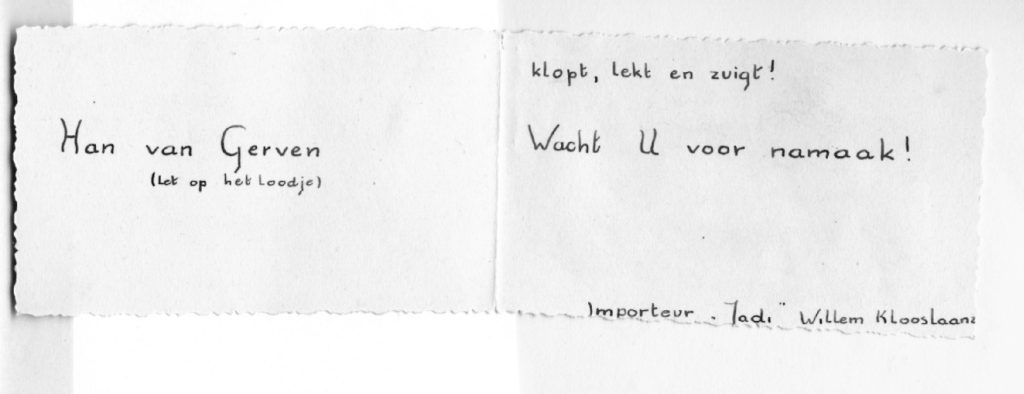 Han van Gerven
(Let op het loodje)
klopt, lekt en zuigt!
Wacht U voor namaak!
Importeur „Jadi" Willem Klooslaan